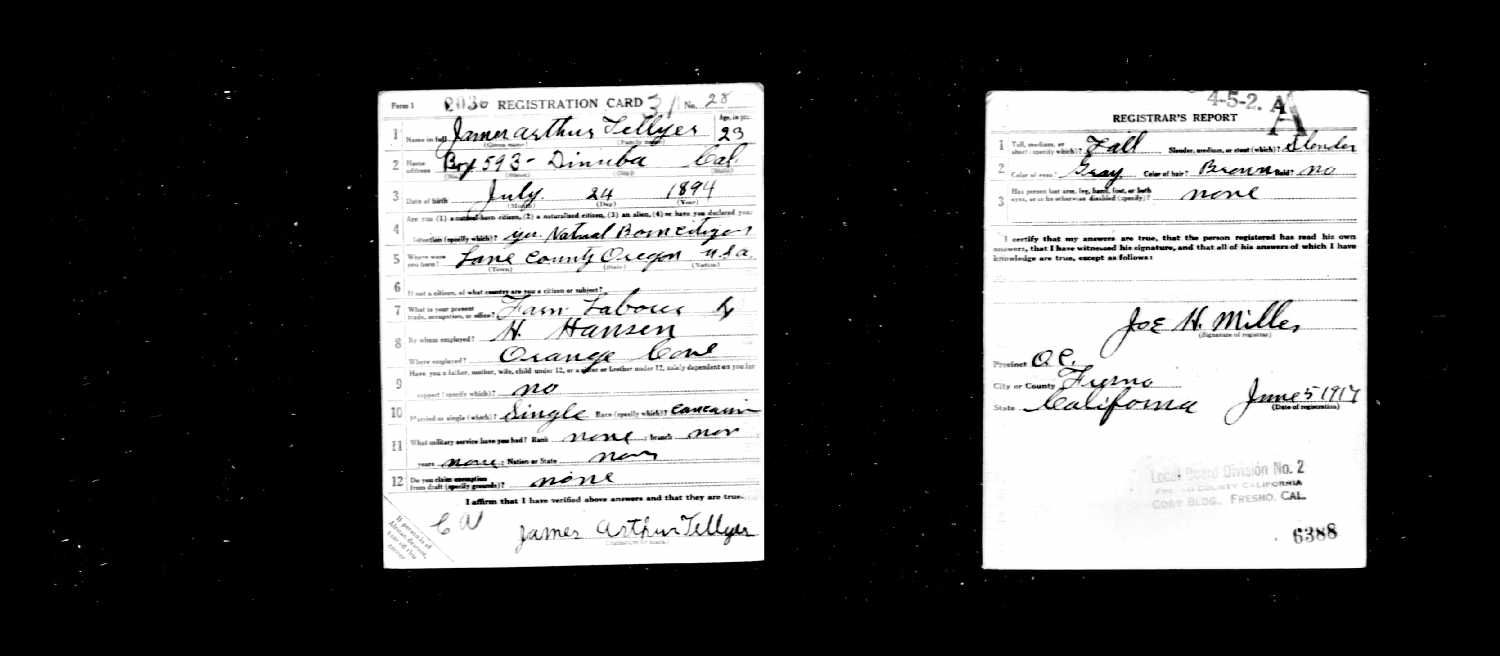 Form 1 2030 REGISTRATION CARD 31 No. 28
1 Name in full James Arthur Tellyer Age, in yrs. 23
(Given name) (Family name)
2 Home address Box 593 - Dinuba Cal.
(No.) (Street) (City) (State)
3 Date of birth July. 24 1894
(Month) (Day) (Year)
Are you (1) a natural-born citizen, (2) a naturalized citizen, (3) an alien, (4) or have you declared your
4 intention (specify which)? yes. Natual Born citizen
5 Where were you born? Lane County Oregon U.S.a.
(Town) (State) (Nation)
6 If not a citizen, of what country are you a citizen or subject?
7 What is your present trade, occupation, or office? Farm Labour
8 By whom employed? H. Hansen
Where employed? Orange Cove
9 Have you a father, mother, wife, child under 12, or a sister or brother under 12, solely dependent on you for
support (specify which)? no
10 Married or single (which)? Single Race (specify which)? Caucasin
11 What military service have you had? Rank none ; branch non ;
years none ; Nation or State non
12 Do you claim exemption from draft (specify grounds)? none
I affirm that I have verified above answers and that they are true.
James Arthur Tellyer
(Signature or mark)
If person is of
African descent,
tear off this
corner
4-5-2. A
REGISTRAR'S REPORT
1 Tall, medium, or short (specify which)? Tall Slender, medium, or stout (which)? Slender
2 Color of eyes? Gray Color of hair? Brown Bald? no
3 Has person lost arm, leg, hand, foot, or both eyes, or is he otherwise disabled (specify)? none
I certify that my answers are true, that the person registered has read his own
answers, that I have witnessed his signature, and that all of his answers of which I have
knowledge are true, except as follows:
Joe H. Miller
(Signature of registrar)
Precinct O.C.
City or County Fresno
State California June 5 1917
(Date of registration)
Local Board Division No. 2
FRESNO COUNTY CALIFORNIA
CORY BLDG., FRESNO, CAL.
6388